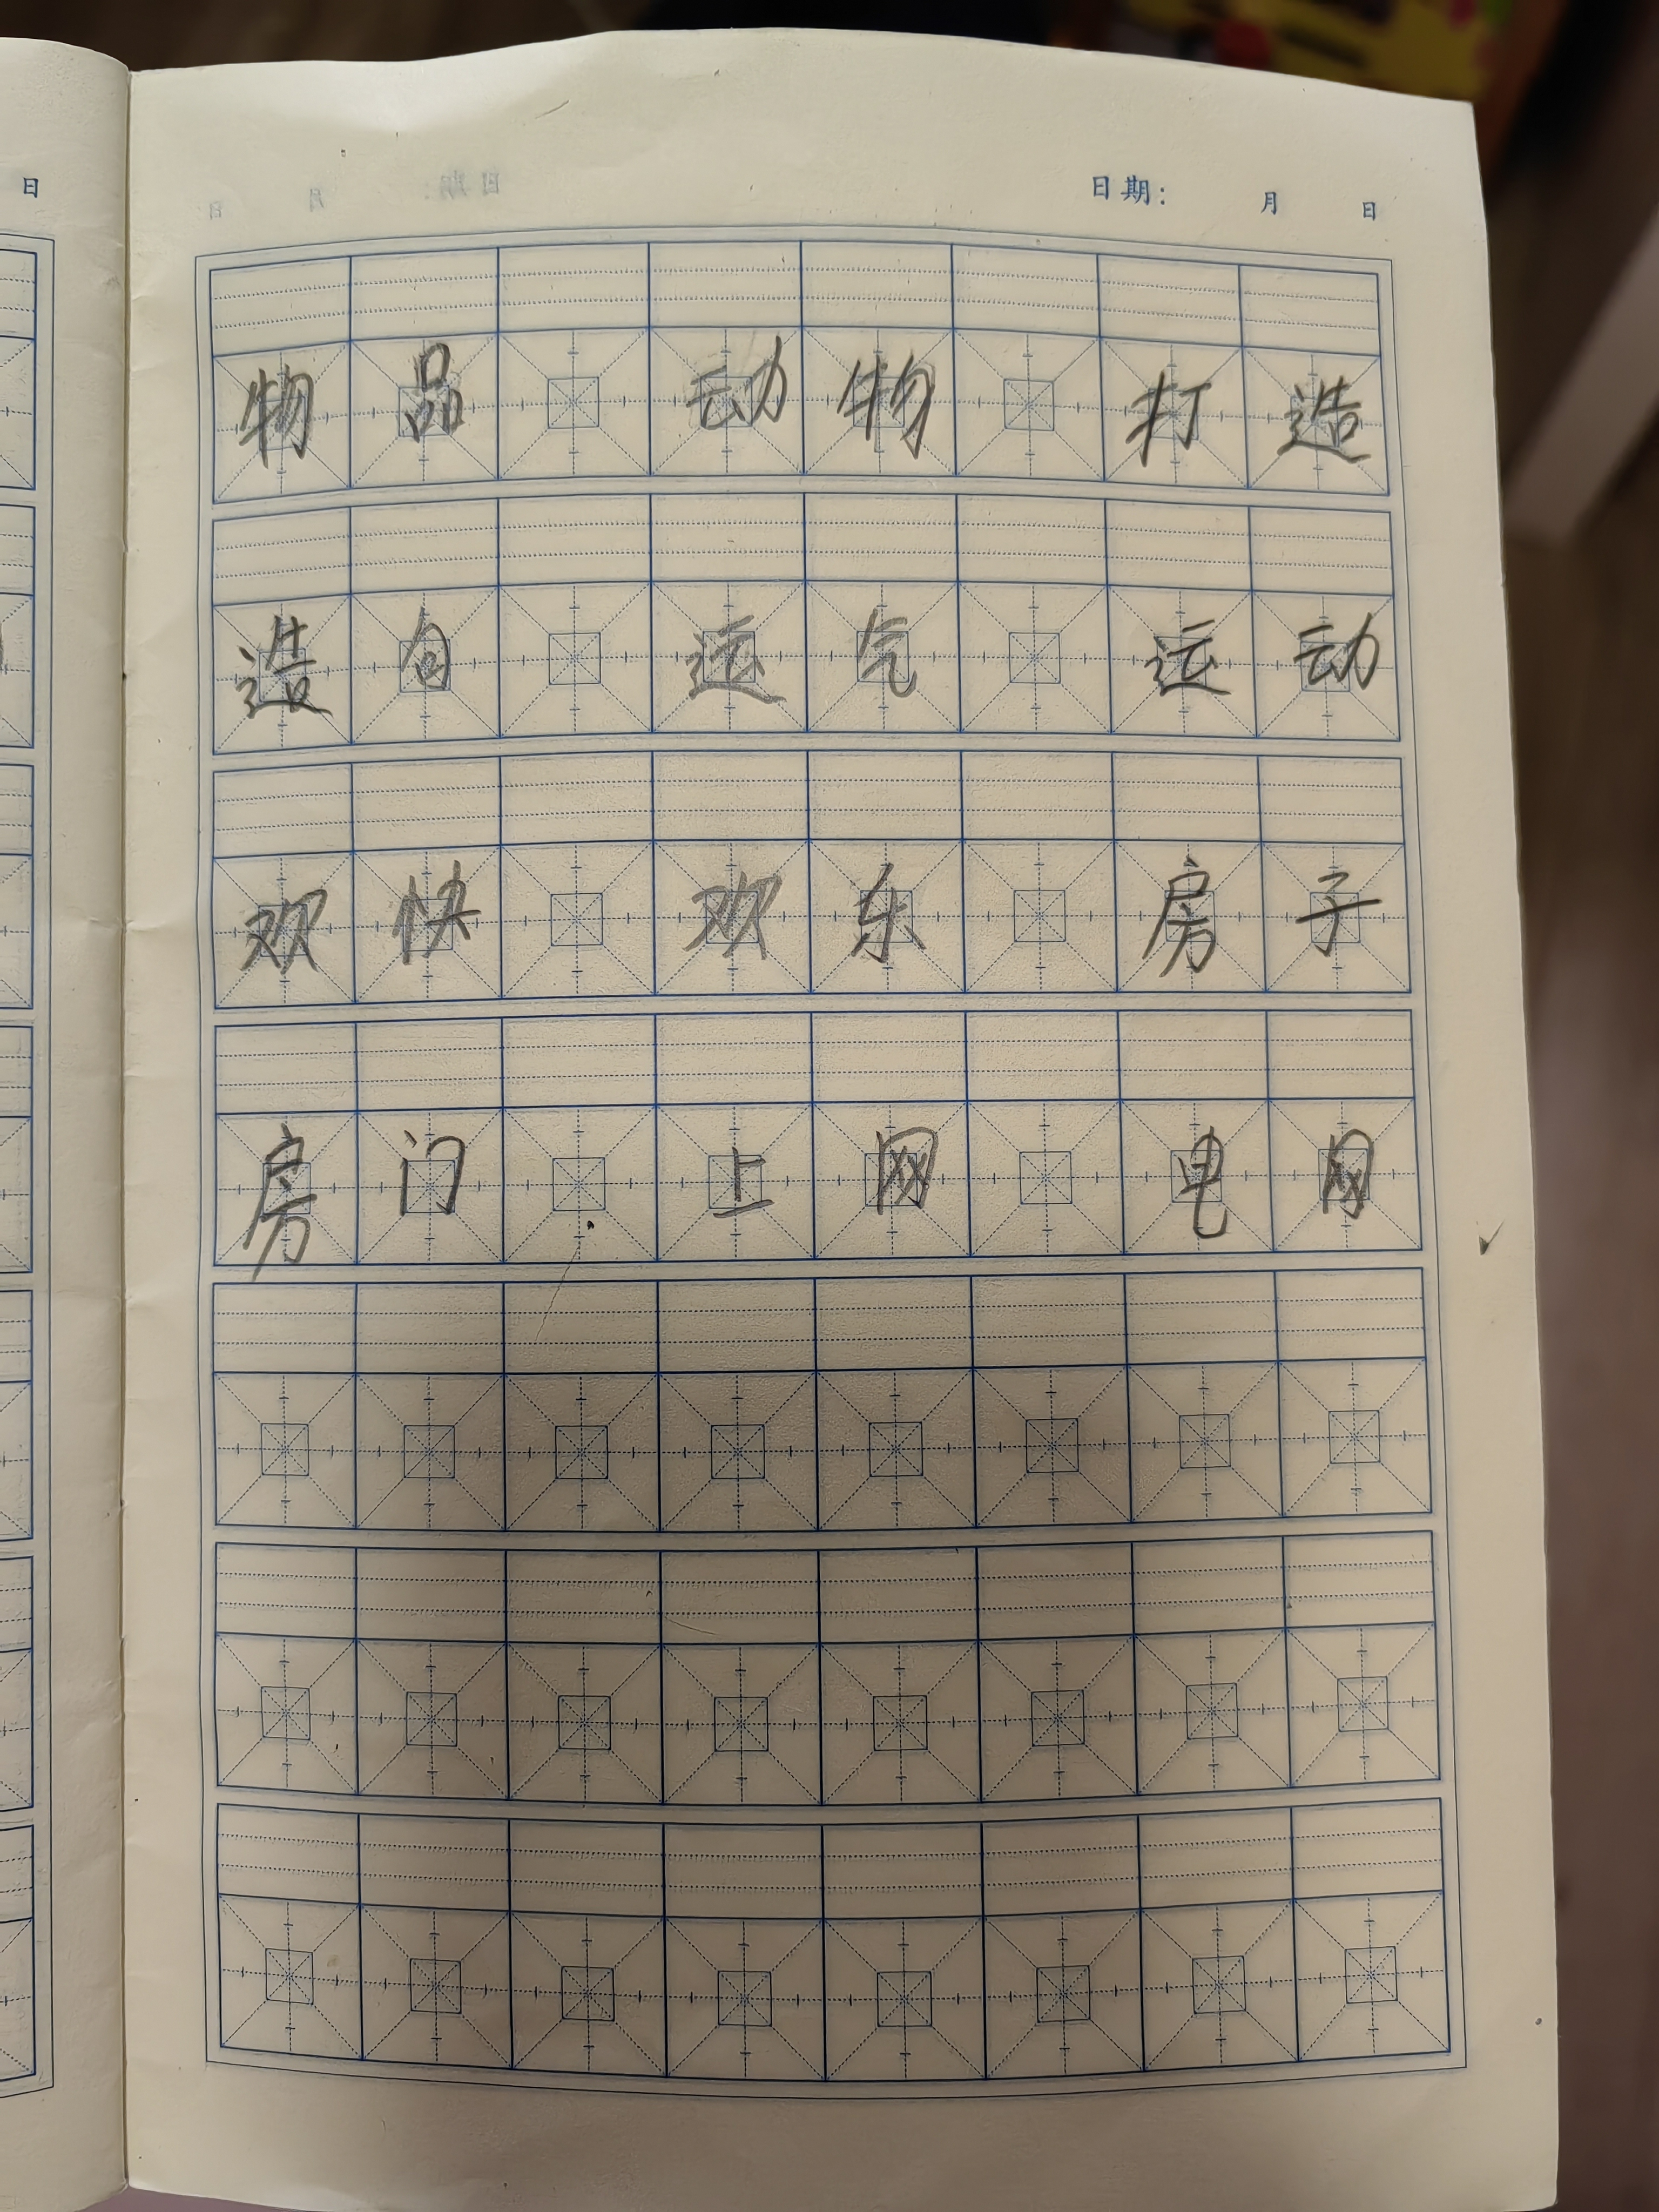 日
日期： 月 日
物品 动物 打造
造句 运气 运动
欢快 欢乐 房子
房门 上网 电网